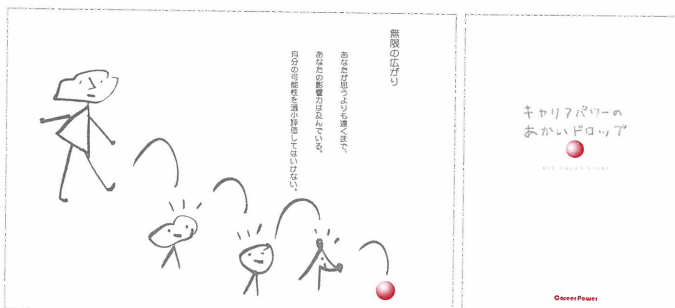 無限の広がり
あなたが思うよりも遠くまで、
あなたの影響力は及んでいる。
自分の可能性を過小評価してはいけない。
キャリアパワーの
あかいドロップ
RED DROPS STORY
CareerPower